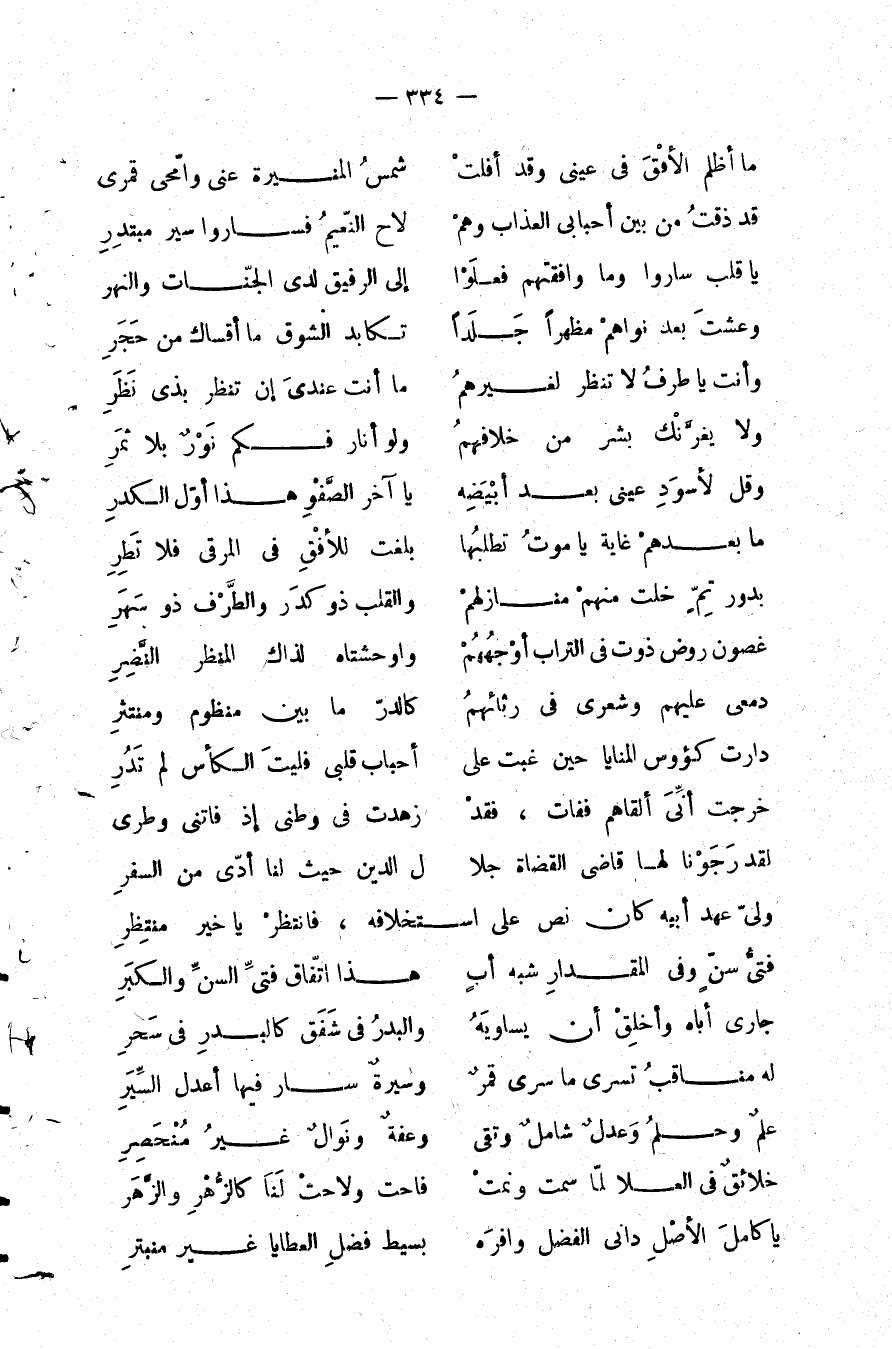 — ٣٣٤ —
ما أظلم الأفْقَ فى عينى وقد أفلتْ شمسُ المنيرة عنى وامّحى قمرى
قد ذقتُ من بين أحبابى العذاب وهمْ لاح النّعيمُ فساروا سير مبتدرِ
يا قلب ساروا وما وافقتهم فعلَوْا إلى الرفيق لدى الجنّات والنهر
وعشتَ بعد نواهمْ مظهراً جَلَداً تكابد الشوق ما أقساك من حَجَرِ
وأنت يا طرفُ لا تنظر لغيرهمُ ما أنت عندىَ إن تنظر بذى نَظَرِ
ولا يغرَّنْك بشر من خلافهمُ ولو أنار فكم نَوْرٌ بلا ثمَرِ
وقل لأسوَدِ عينى بعد أبْيَضِه يا آخر الصَّفْوِ هذا أوّل الكدرِ
ما بعدهمْ غاية يا موتُ تطلبُها بلغت للأفْقِ فى المرقى فلا تَطِرِ
بدور تِمٍّ خلت منهمْ منازلهمْ والقلب ذو كدَر والطَّرْف ذو سَهَرِ
غصون روض ذوت فى التراب أوْجُهُهُمْ واوحشتاه لذاك المنظر النَّضِرِ
دمعى عليهم وشعرى فى رثائهمُ كالدرّ ما بين منظوم ومنتثرِ
دارت كؤوس المنايا حين غبت على أحباب قلبى فليتَ الكأس لم تَدُرِ
خرجت أنِّىَ ألقاهم ففات ، فقدْ زهدت فى وطنى إذ فاتنى وطرى
لقد رَجَوْنا لها قاضى القضاة جلا ل الدين حيث لنا أدّى من السفرِ
ولىّ عهد أبيه كان نص على استخلافه ، فانتظرْ يا خير منتظِرِ
فتىُّ سنّ وفى المقدارِ شبه أبٍ هذا اتّفاق فتىِّ السنِّ والكبَرِ
جارى أباه وأخلِقْ أن يساويَهُ والبدرُ فى شَفَق كالبدرِ فى سَحَرِ
له مناقبُ تسرى ما سرى قمرٌ وسيرةٌ سار فيها أعدل السِّيَرِ
علمٌ وحلمُ وَعدلٌ شاملٌ وتقى وعفةٌ ونَوالٌ غيرُ مُنْحَصِرِ
خلائقٌ فى العلا لمّا سمت ونمتْ فاحت ولاحتْ لَنَا كالزُّهْرِ والزَّهَرِ
يا كاملَ الأصْلِ دانى الفضل وافرَه بسيط فضلِ العطايا غير منبترِ